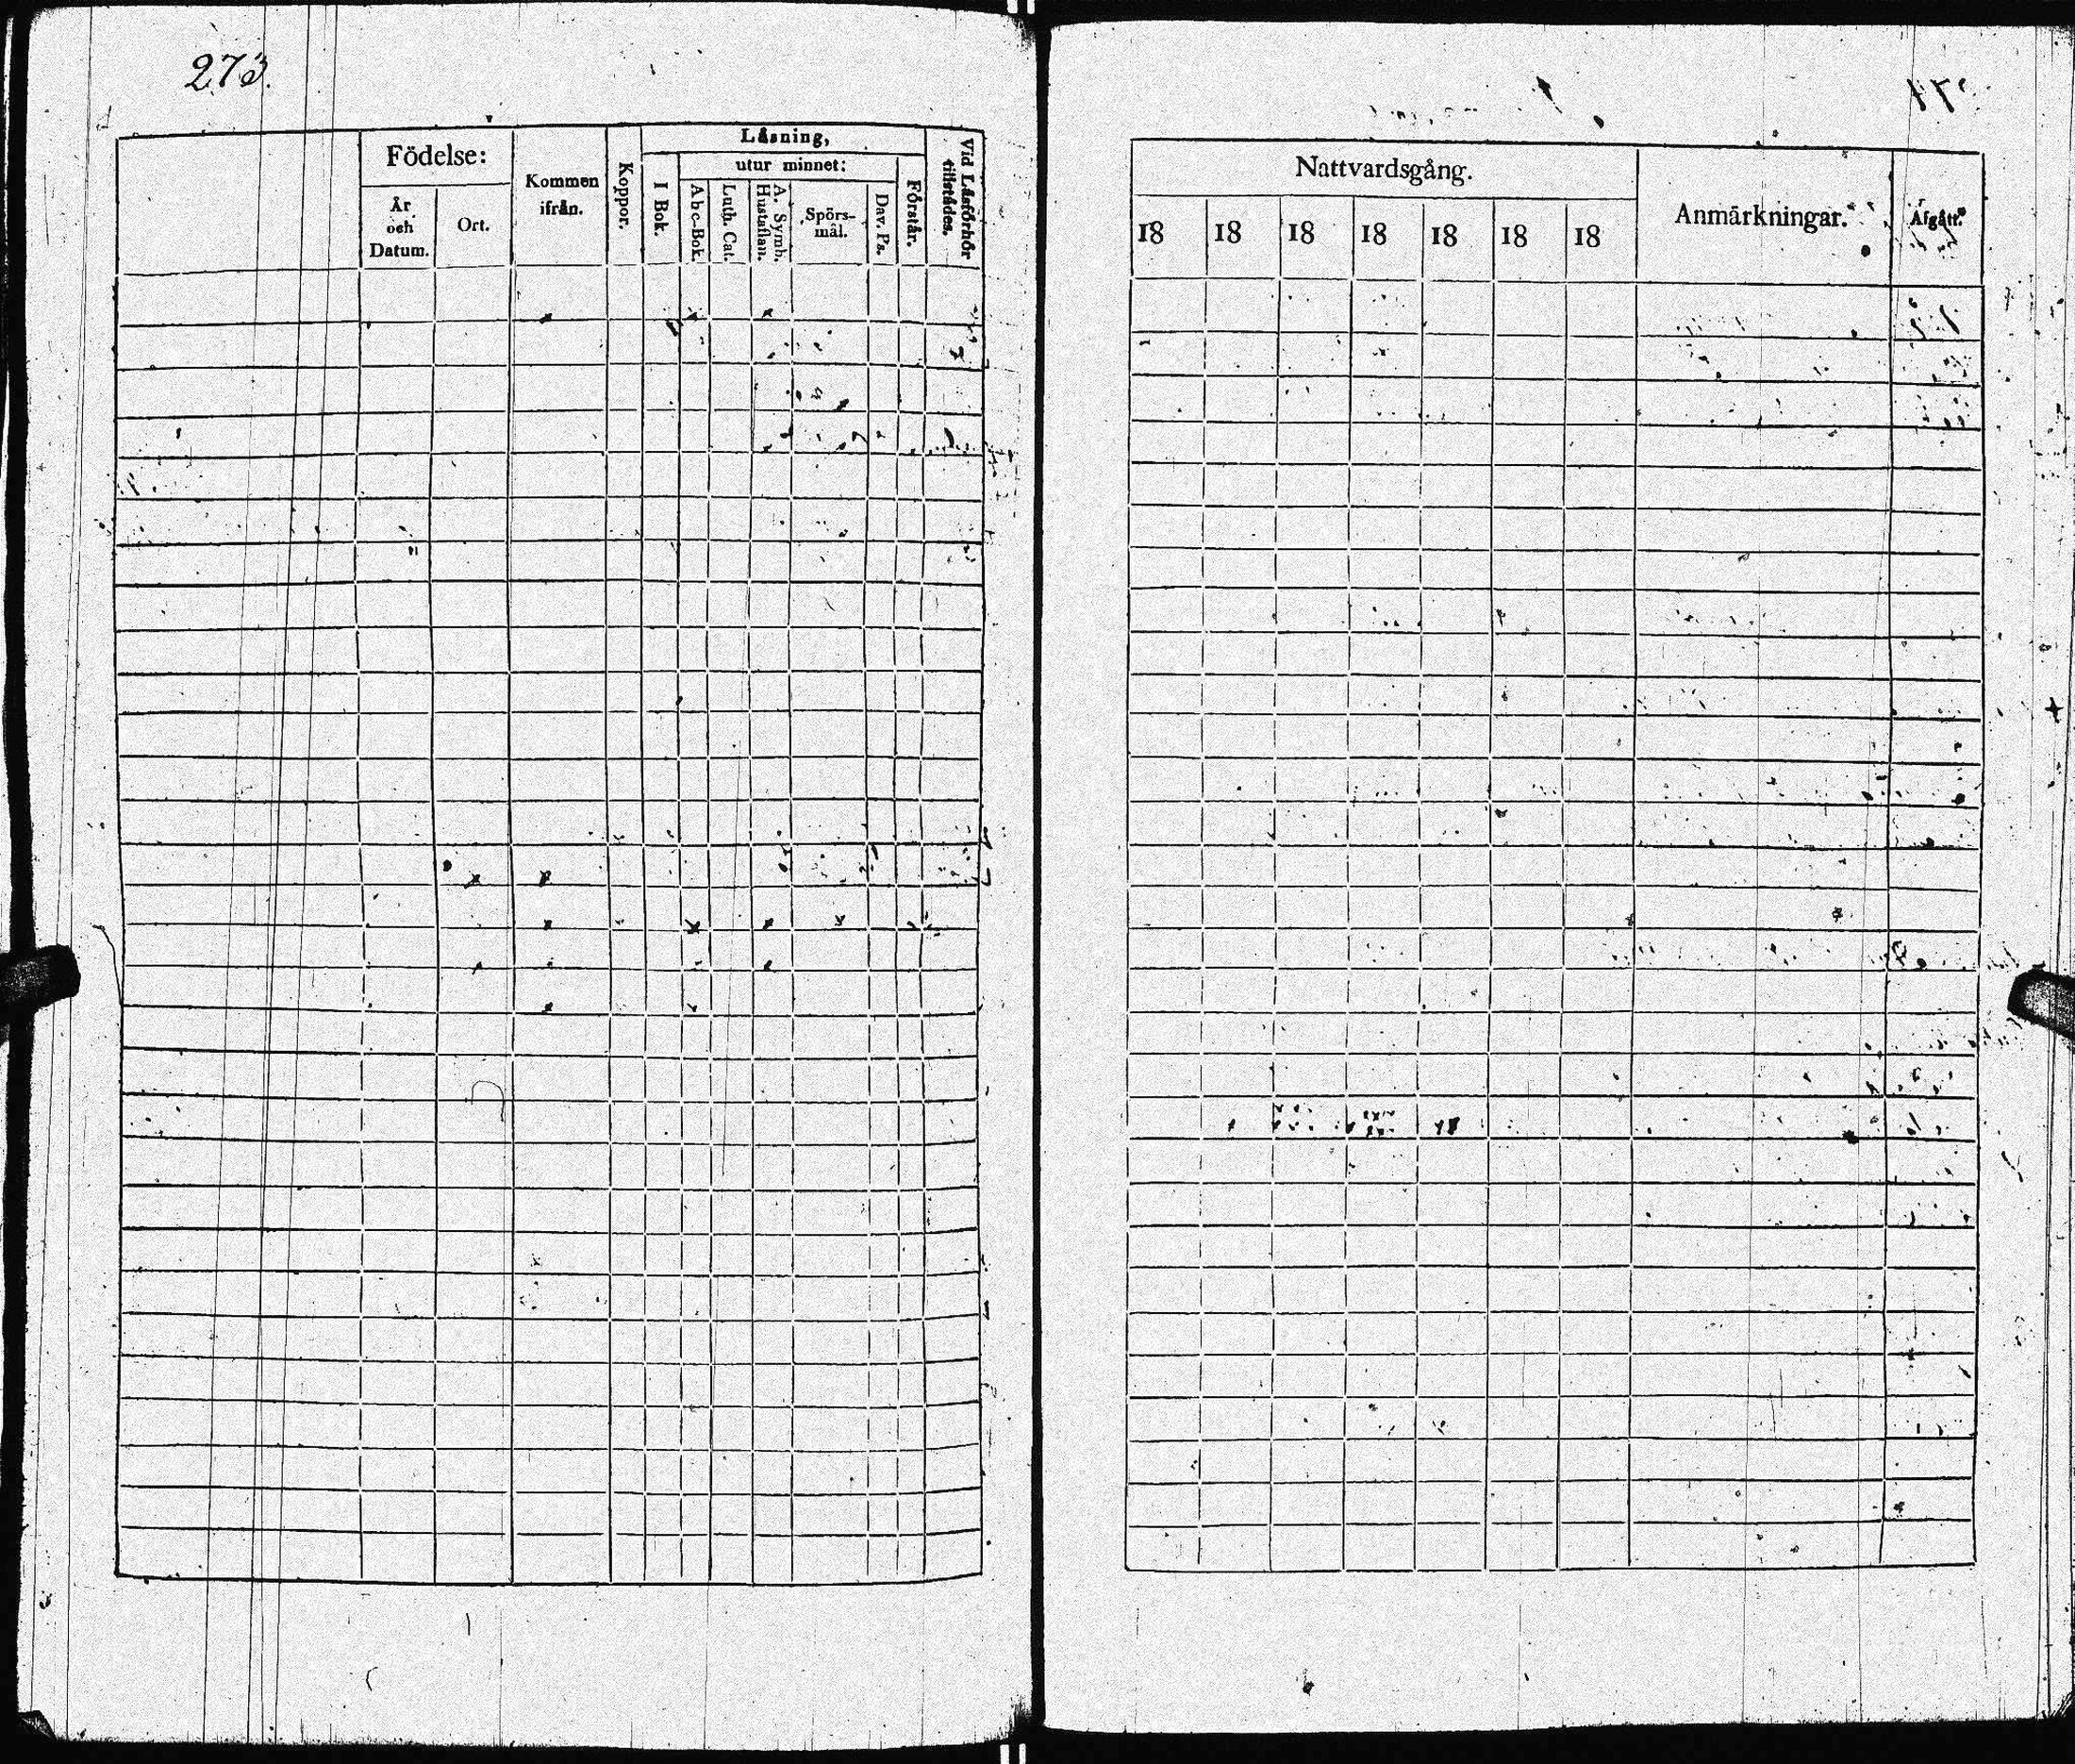 273.
Födelse:
År och Datum.
Ort.
Kommen ifrån.
Koppor.
Läsning,
I Bok.
utur minnet:
Abc-Bok.
Luth. Cat.
A. Symb. Hustaflan.
Spörsmål.
Dav. Ps.
Förstår.
Vid Läsförhör tillstädes.
Nattvardsgång.
18 18 18 18 18 18 18
Anmärkningar.
Afgått.